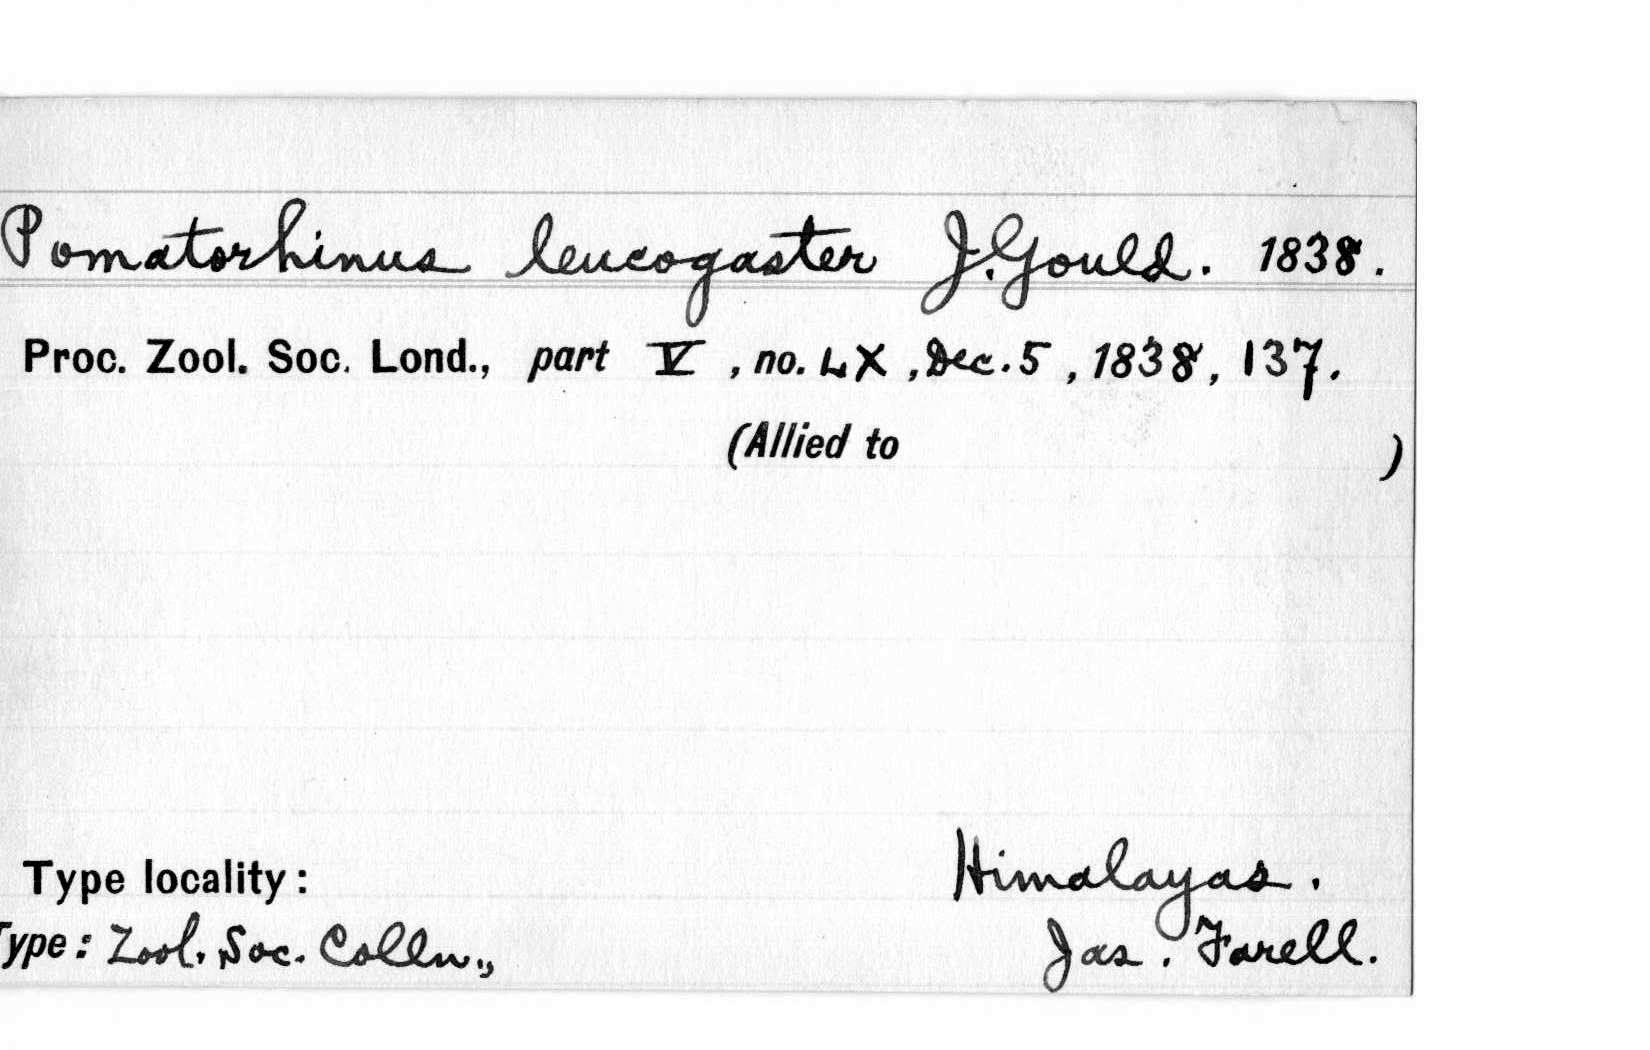 Pomatorhinus leucogaster J. Gould. 1838.
Proc. Zool. Soc. Lond., part V, no. LX, Dec. 5, 1838, 137.
(Allied to )
Type locality: Himalayas.
Type: Zool. Soc. Colln., Jas. Farell.